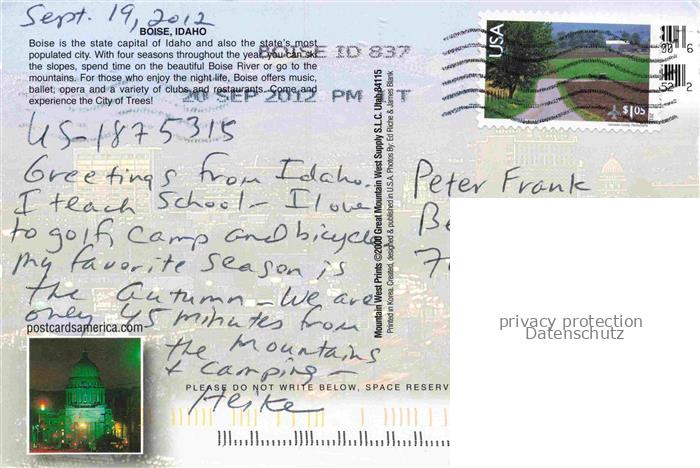 Sept. 19, 2012
BOISE, IDAHO
Boise is the state capital of Idaho and also the state's most
populated city. With four seasons throughout the year, you can ski
the slopes, spend time on the beautiful Boise River or go to the
mountains. For those who enjoy the night life, Boise offers music,
ballet, opera and a variety of clubs and restaurants. Come and
experience the City of Trees!
BOISE ID 837
20 SEP 2012 PM T
US-1875315
Greetings from Idaho.
I teach School - I love
to golf, camp and bicycle.
my favorite season is
the autumn - We are
only 45 minutes from
the mountains
+ camping -
Heike
postcardsamerica.com
PLEASE DO NOT WRITE BELOW, SPACE RESERV
Mountain West Prints ©2000 Great Mountain West Supply S.L.C. Utah 84115
Printed in Korea, Created, designed & published in U.S.A. Photos By: Ed Riche & James Blank
USA
$1.05
Peter Frank
Be
7
privacy protection
Datenschutz